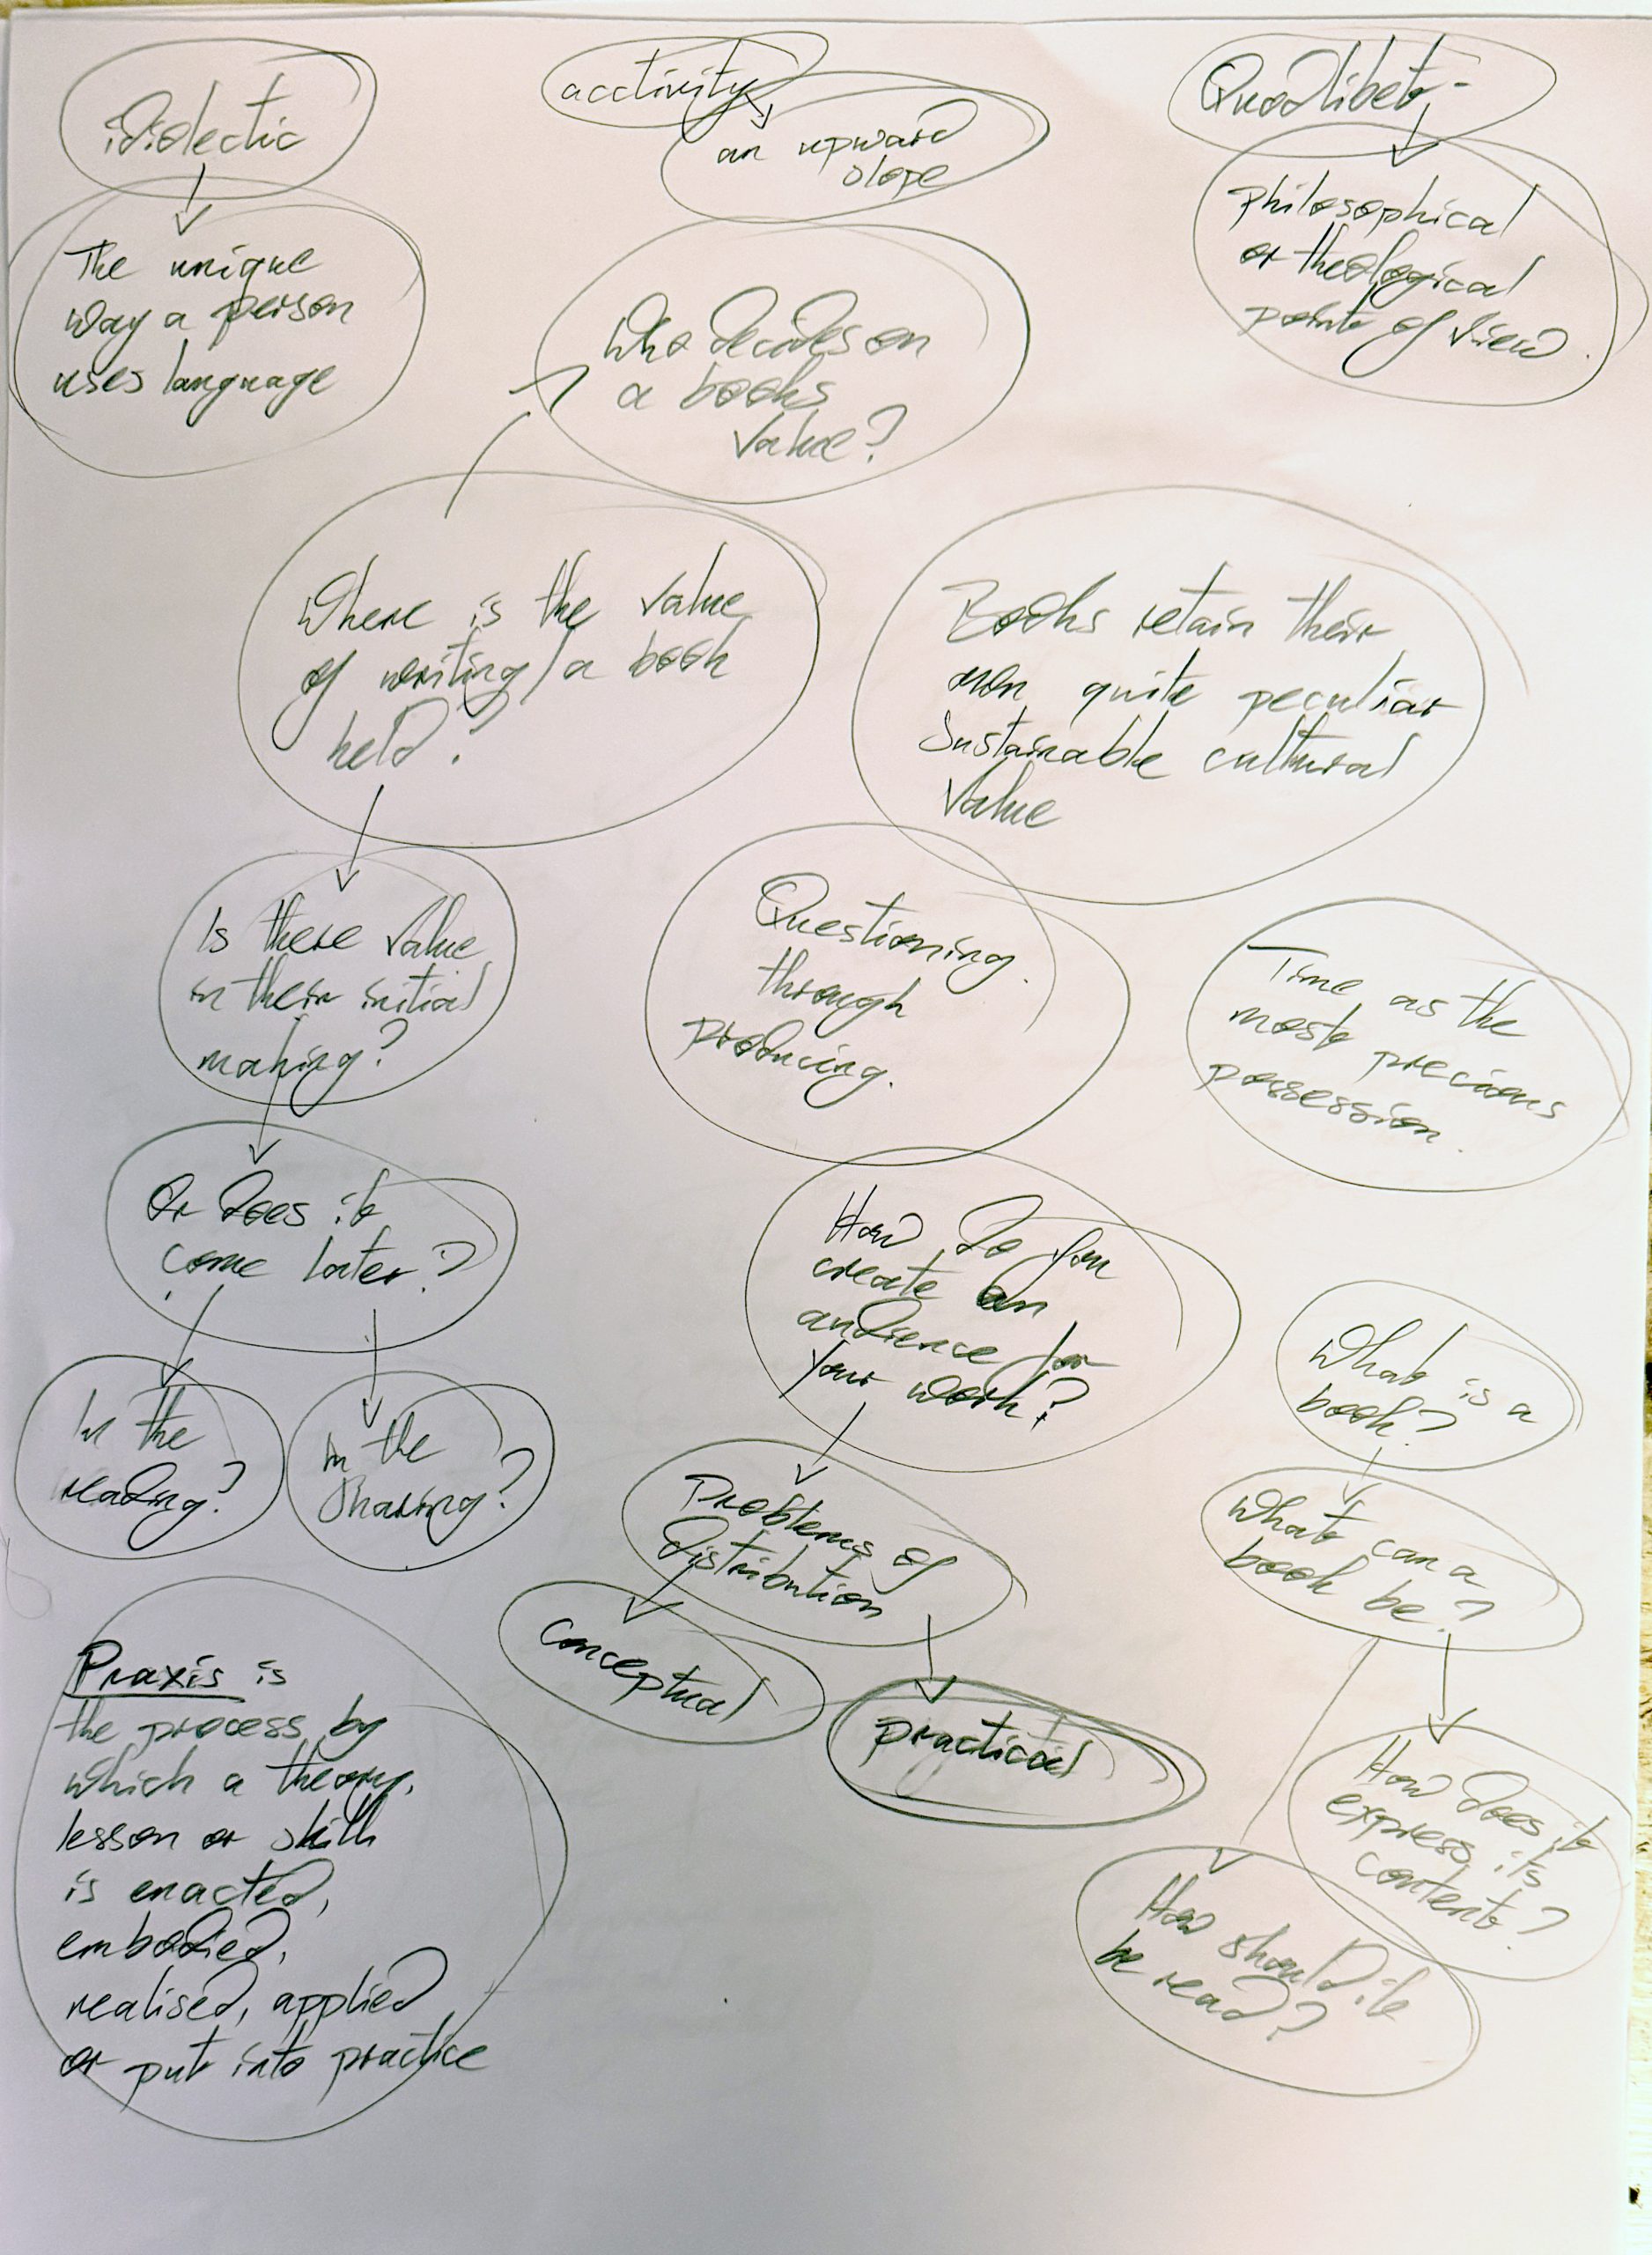 idiolectic
The unique
way a person
uses language
acctivity
an upward
slope
Quodlibet-
philosophical
or theological
point of view.
Who decides on
a books
value?
Where is the value
of writing/a book
held?
Books retain their
own quite peculiar
sustainable cultural
value
Is there value
in their initial
making?
Questioning
through
producing.
Time as the
most precious
possession.
Or does it
come later?
In the
reading?
in the
sharing?
How do you
create an
audience for
your work?
Problems of
distribution
conceptual
practical
What is a
book?
What can a
book be?
How does it
express its
content?
How should it
be read?
Praxis is
the process by
which a theory,
lesson or skill
is enacted,
embodied,
realised, applied
or put into practice